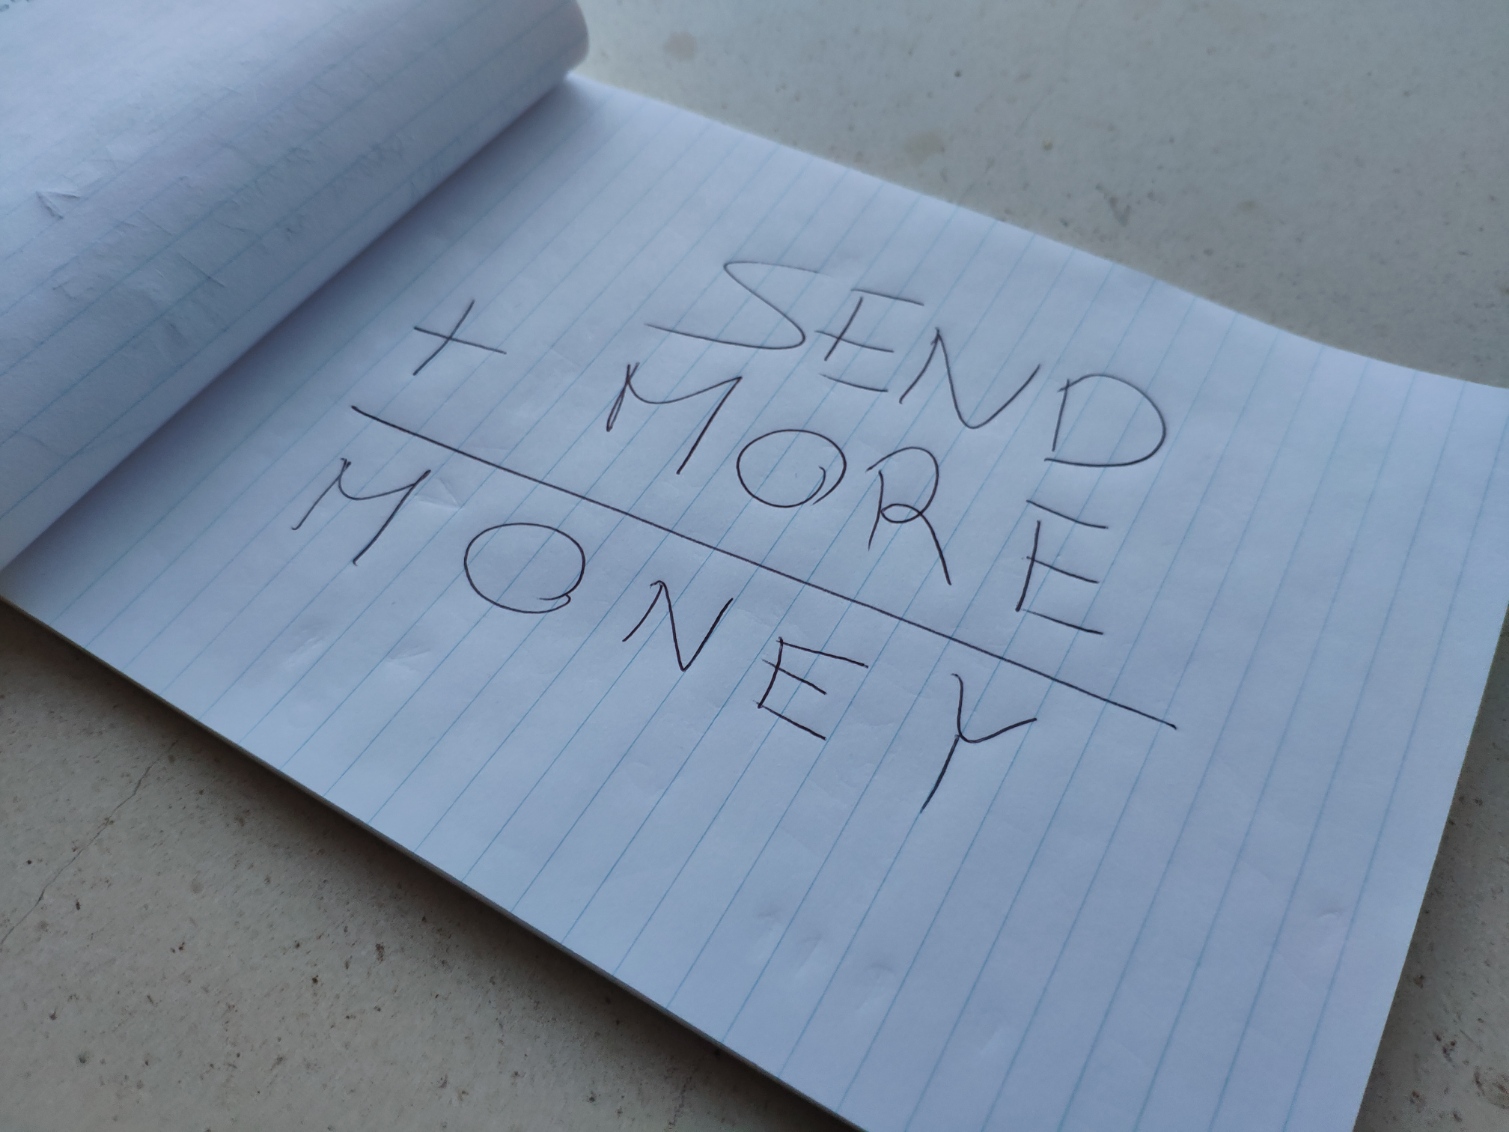 SEND
+ MORE
MONEY